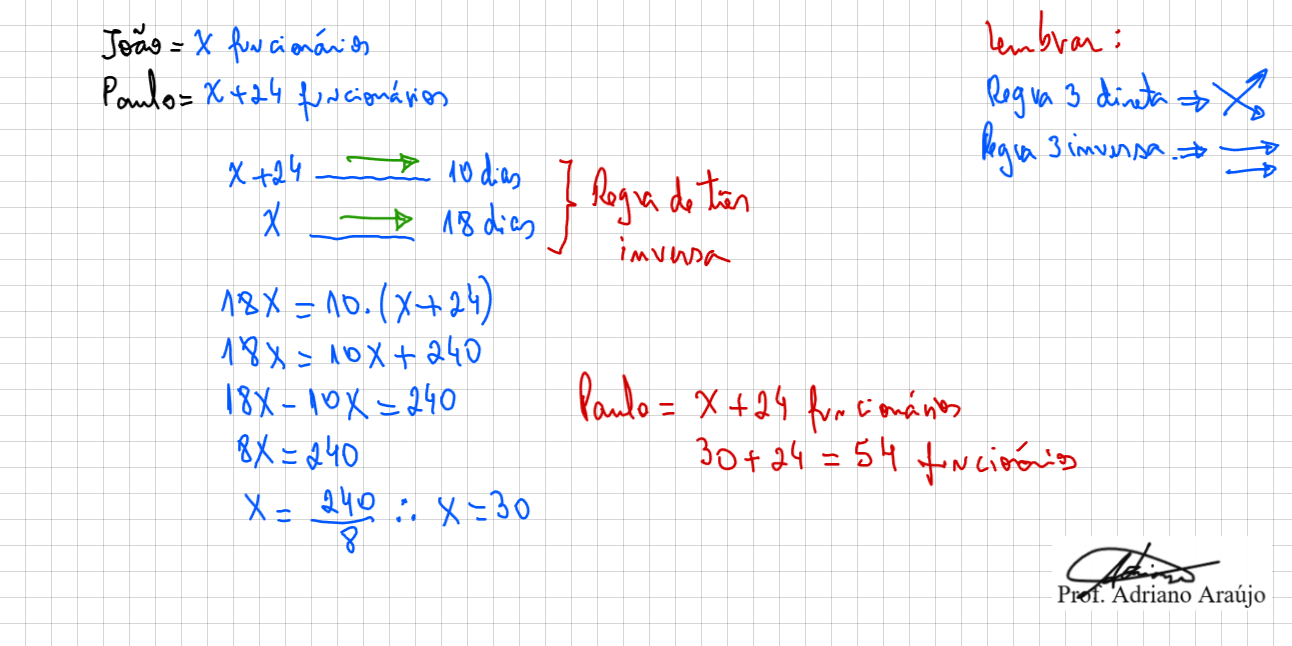 João = x funcionários
Paulo = x+24 funcionários
x+24 → 10 dias
x → 18 dias
Regra de três
inversa
18x = 10.(x+24)
18x = 10x + 240
18x - 10x = 240
8x = 240
x = 240/8 ∴ x = 30
Lembrar:
Regra 3 direta ⇒
Regra 3 inversa. ⇒
Paulo = x+24 funcionários
30+24 = 54 funcionários
Prof. Adriano Araújo